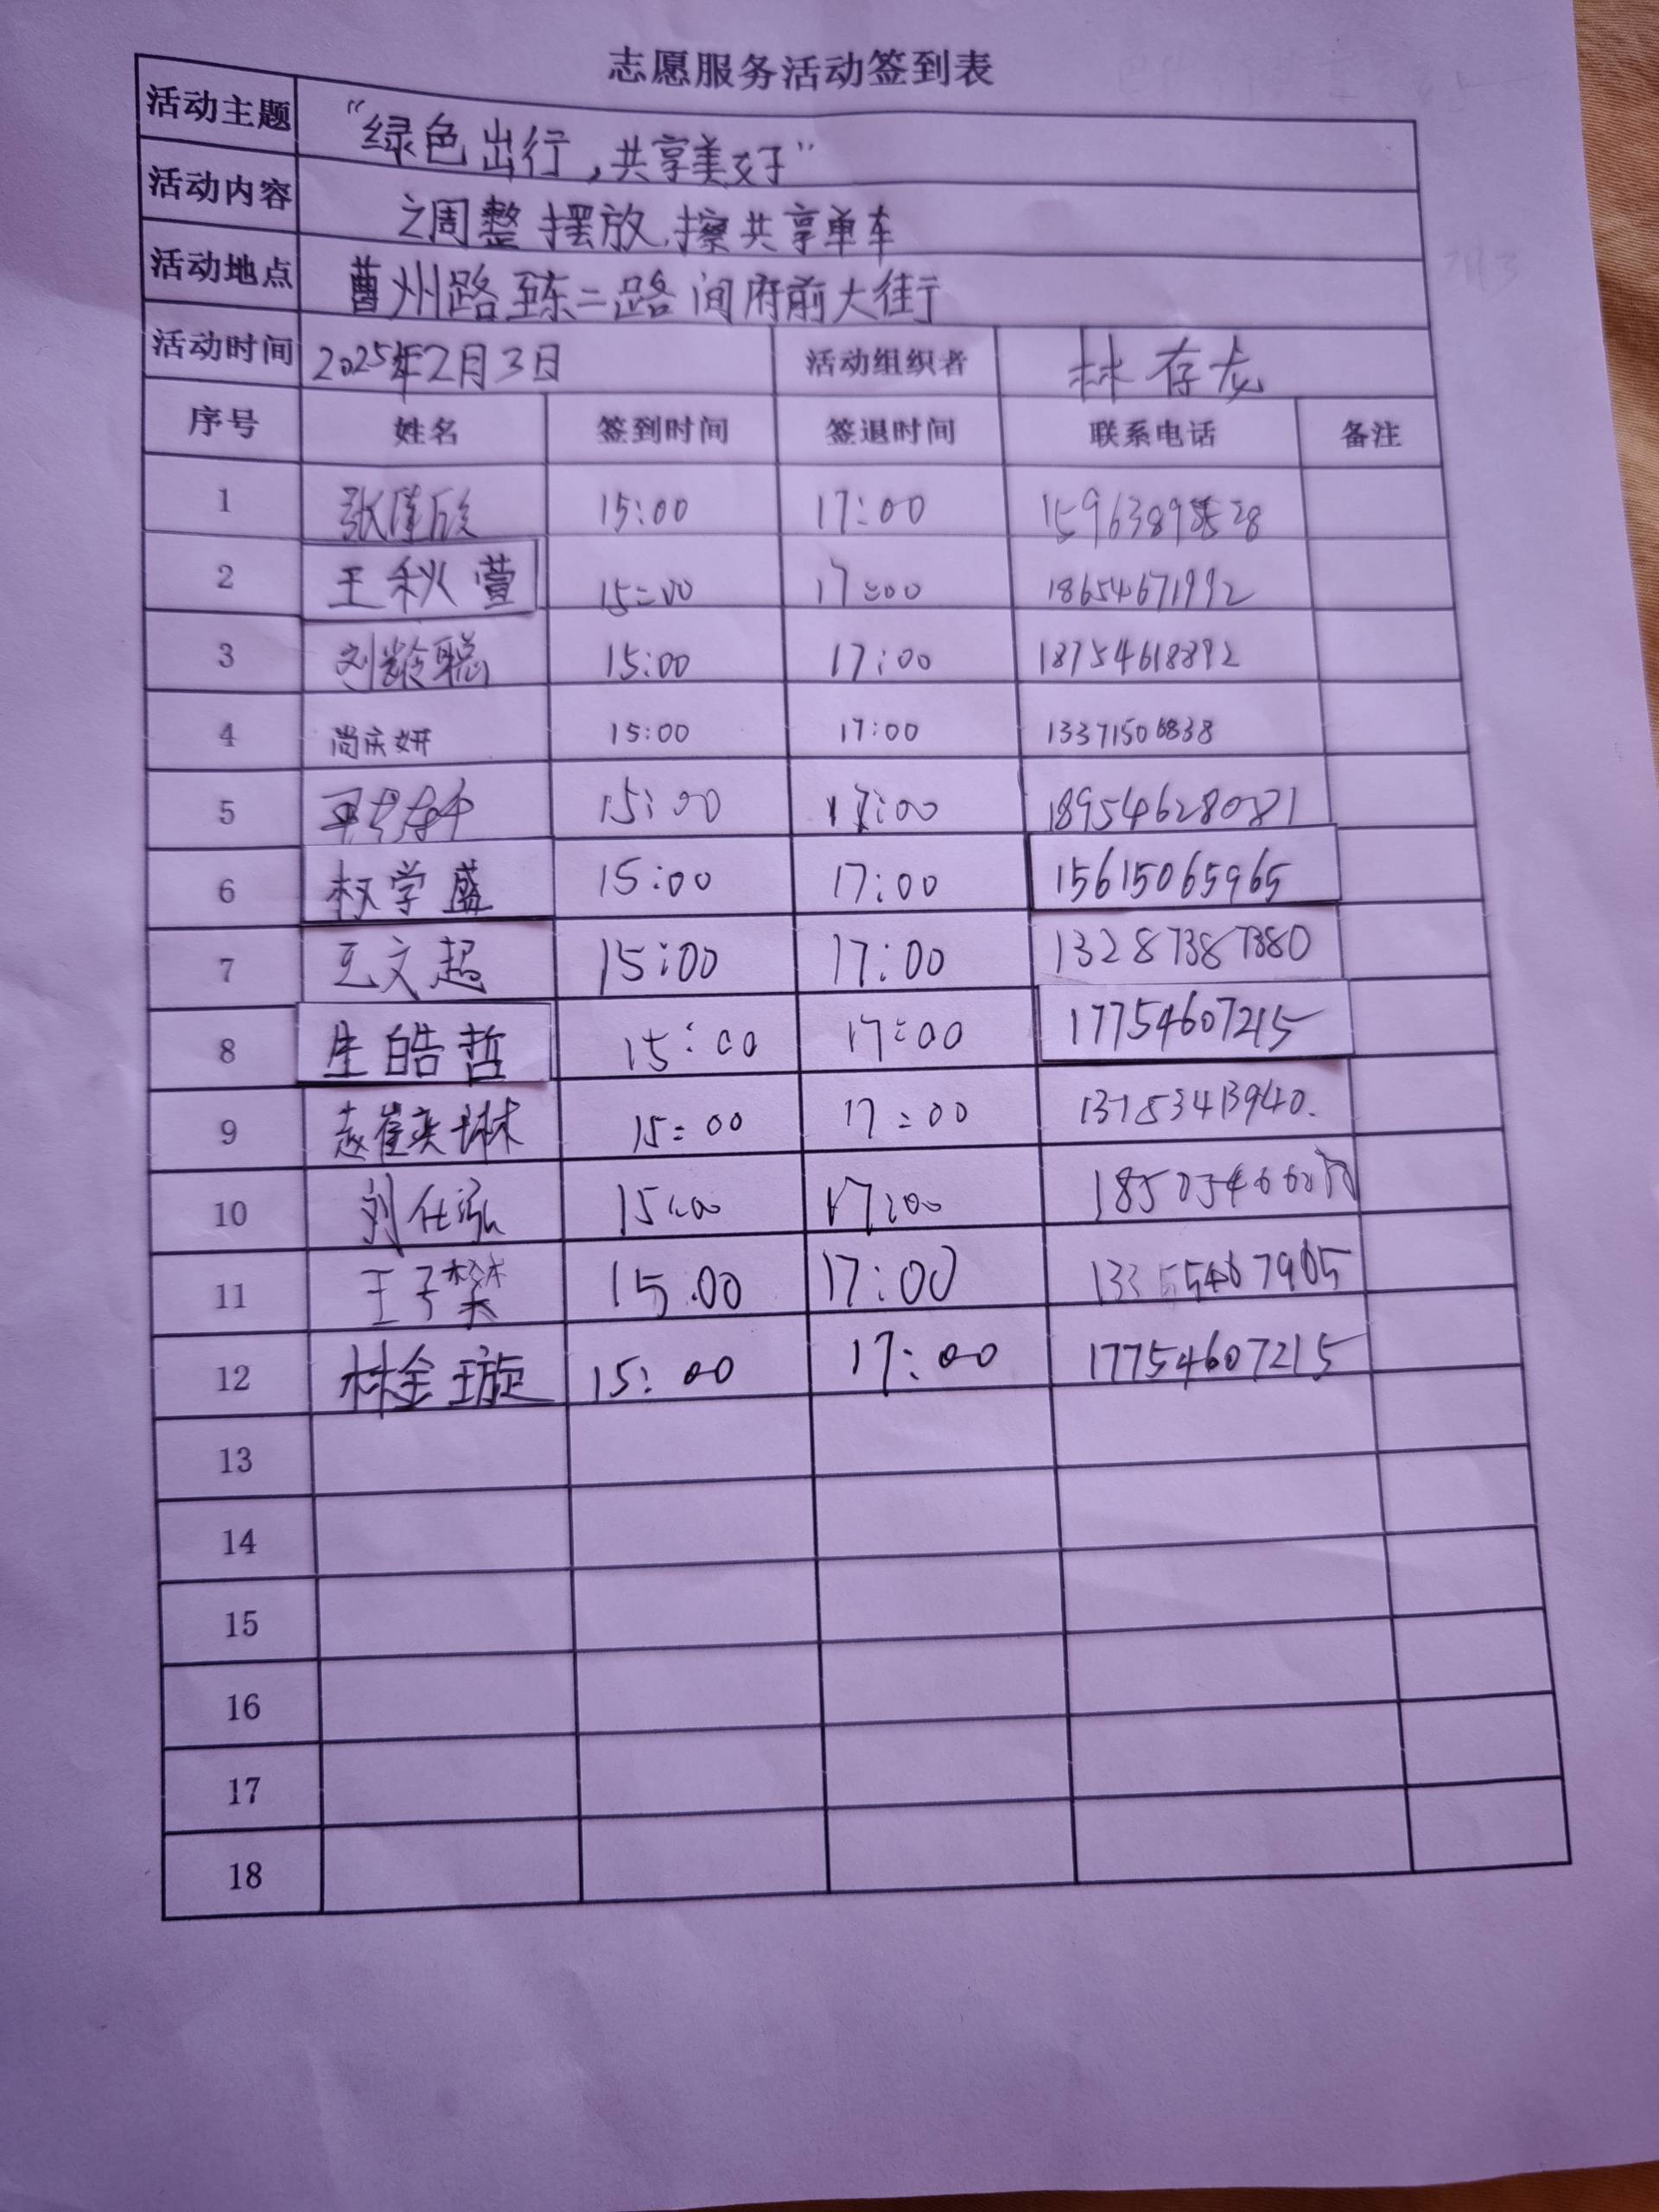 志愿服务活动签到表
活动主题 “绿色出行，共享美好”
活动内容 之周整摆放、擦共享单车
活动地点 曹州路至东二路间府前大街
活动时间 2025年2月3日 活动组织者 林存龙
序号 姓名 签到时间 签退时间 联系电话 备注
1 15:00 17:00
2 王秋萱 15:00 17:00 18654671992
3 刘龄聪 15:00 17:00 18754618892
4 尚庆妍 15:00 17:00 13371506838
5 15:00 17:00 18954628081
6 权学盛 15:00 17:00 15615065965
7 王文超 15:00 17:00 13287387380
8 生皓哲 15:00 17:00 17754607215
9 赵崔奕琳 15:00 17:00 13783413940.
10 刘仕泓 15:00 17:00
11 王子 15:00 17:00
12 林金璇 15:00 17:00 17754607215
13
14
15
16
17
18